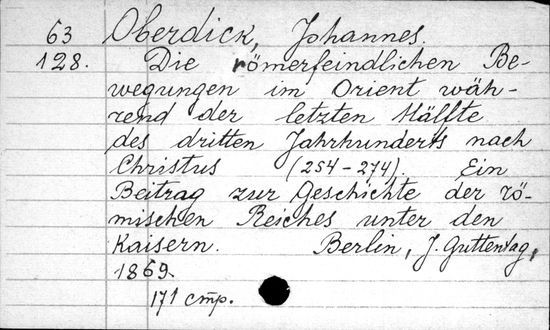 63 Oberdick, Johannes.
128. Die römerfeindlichen Be-
wegungen im Orient wäh-
rend der letzten Hälfte
des dritten Jahrhunderts nach
Christus (254-274). Ein
Beitrag zur Geschichte der rö-
mischen Reiches unter den
Kaisern. Berlin, J. Guttentag,
1869.
171 стр.